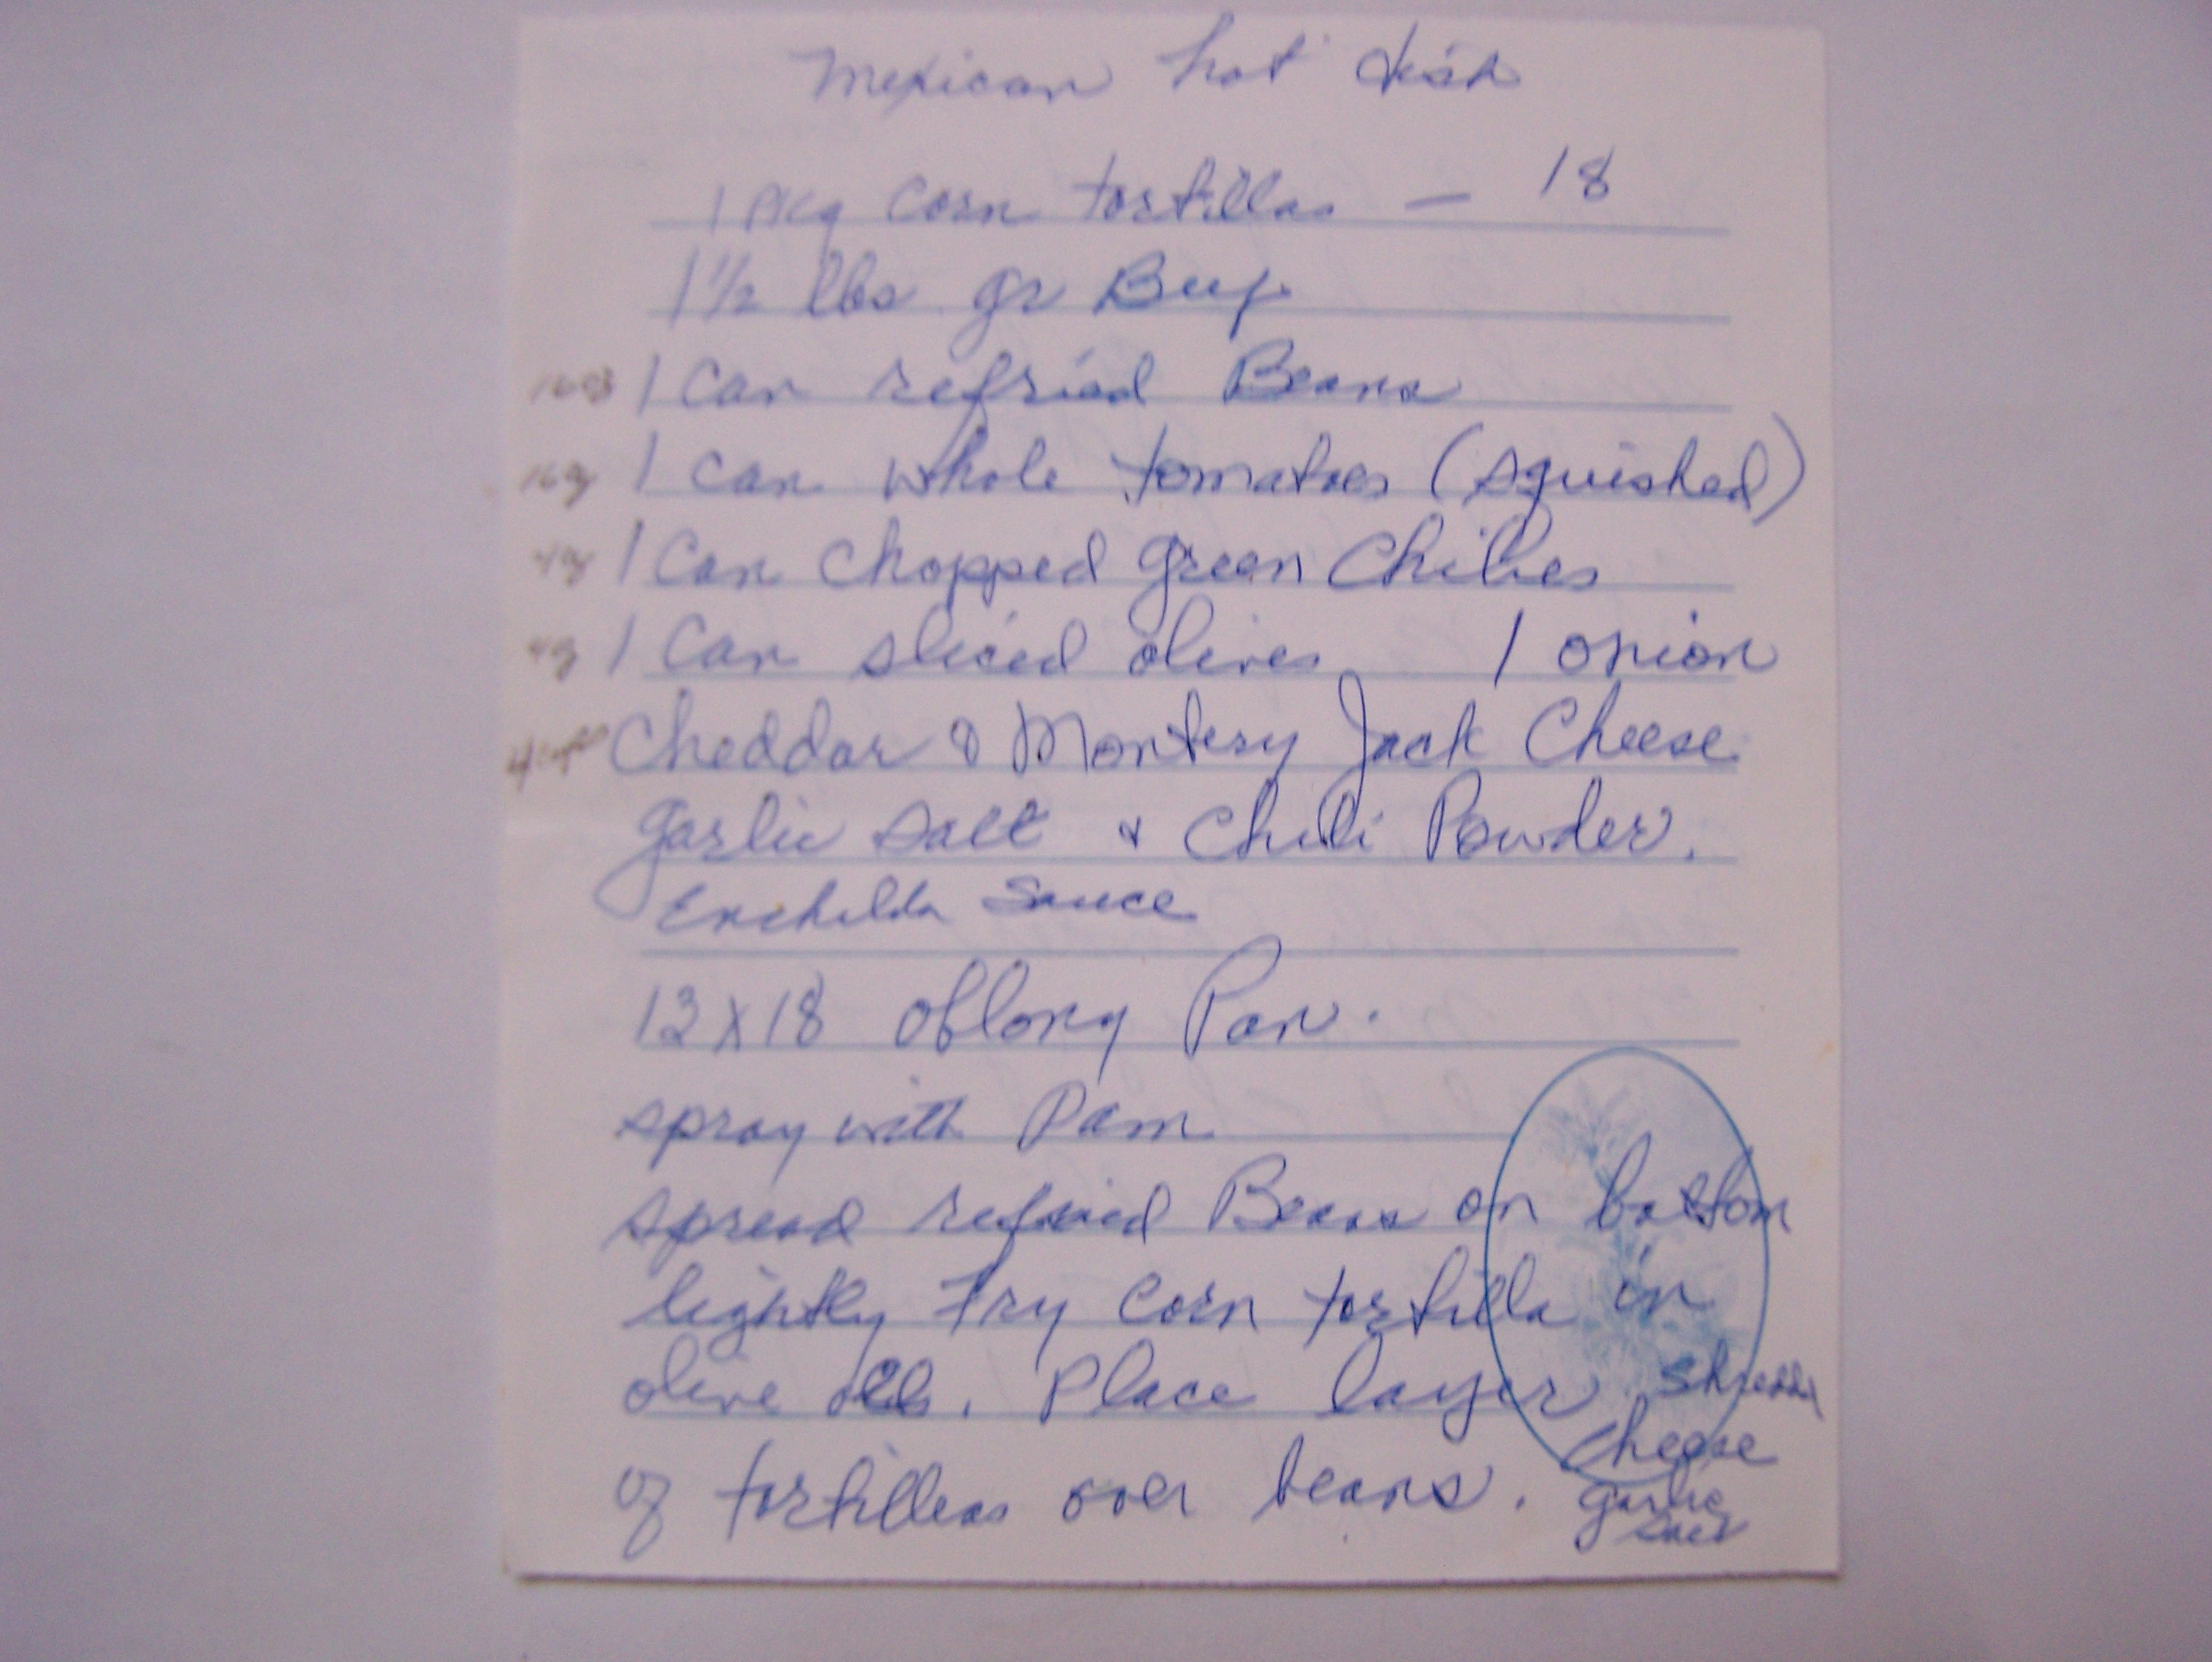 Mexican hot dish
1 Pkg Corn tortillas — 18
1 1/2 lbs gr Beef
16 oz 1 Can refried Beans
16 oz 1 can whole tomatoes (squished)
4 oz 1 Can chopped green Chilies
4 oz 1 Can sliced olives 1 onion
4 cups Cheddar & Montery Jack Cheese
garlic salt & Chili Powder.
Enchilda Sauce
13 x 18 oblong Pan.
spray with Pam
spread refried Beans on bottom
lightly Fry Corn tortilla in
olive. Place layer shredded
of tortillas over beans. cheese
garlic
salt